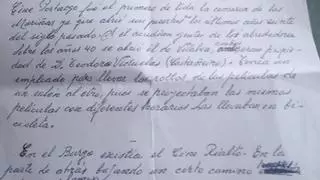 Cine Santiago fue el primero de toda la comarca de las
Mariñas ya que abrió sus puertas los últimos años veinte
del siglo pasado. A él acudían gentes de los alrededores
Sobre los años 40 se abrió el de Vilaboa
de Teodoro Vizcuelas Tenía un
empleado para llevar los rollos de las películas de
un salón al otro, pues se proyectaban las mismas
películas con diferentes horarios. Las llevaban en bi-
cicleta.
En el Burgo existía el Cine Rialto. En la
parte de atrás bajando un corto camino